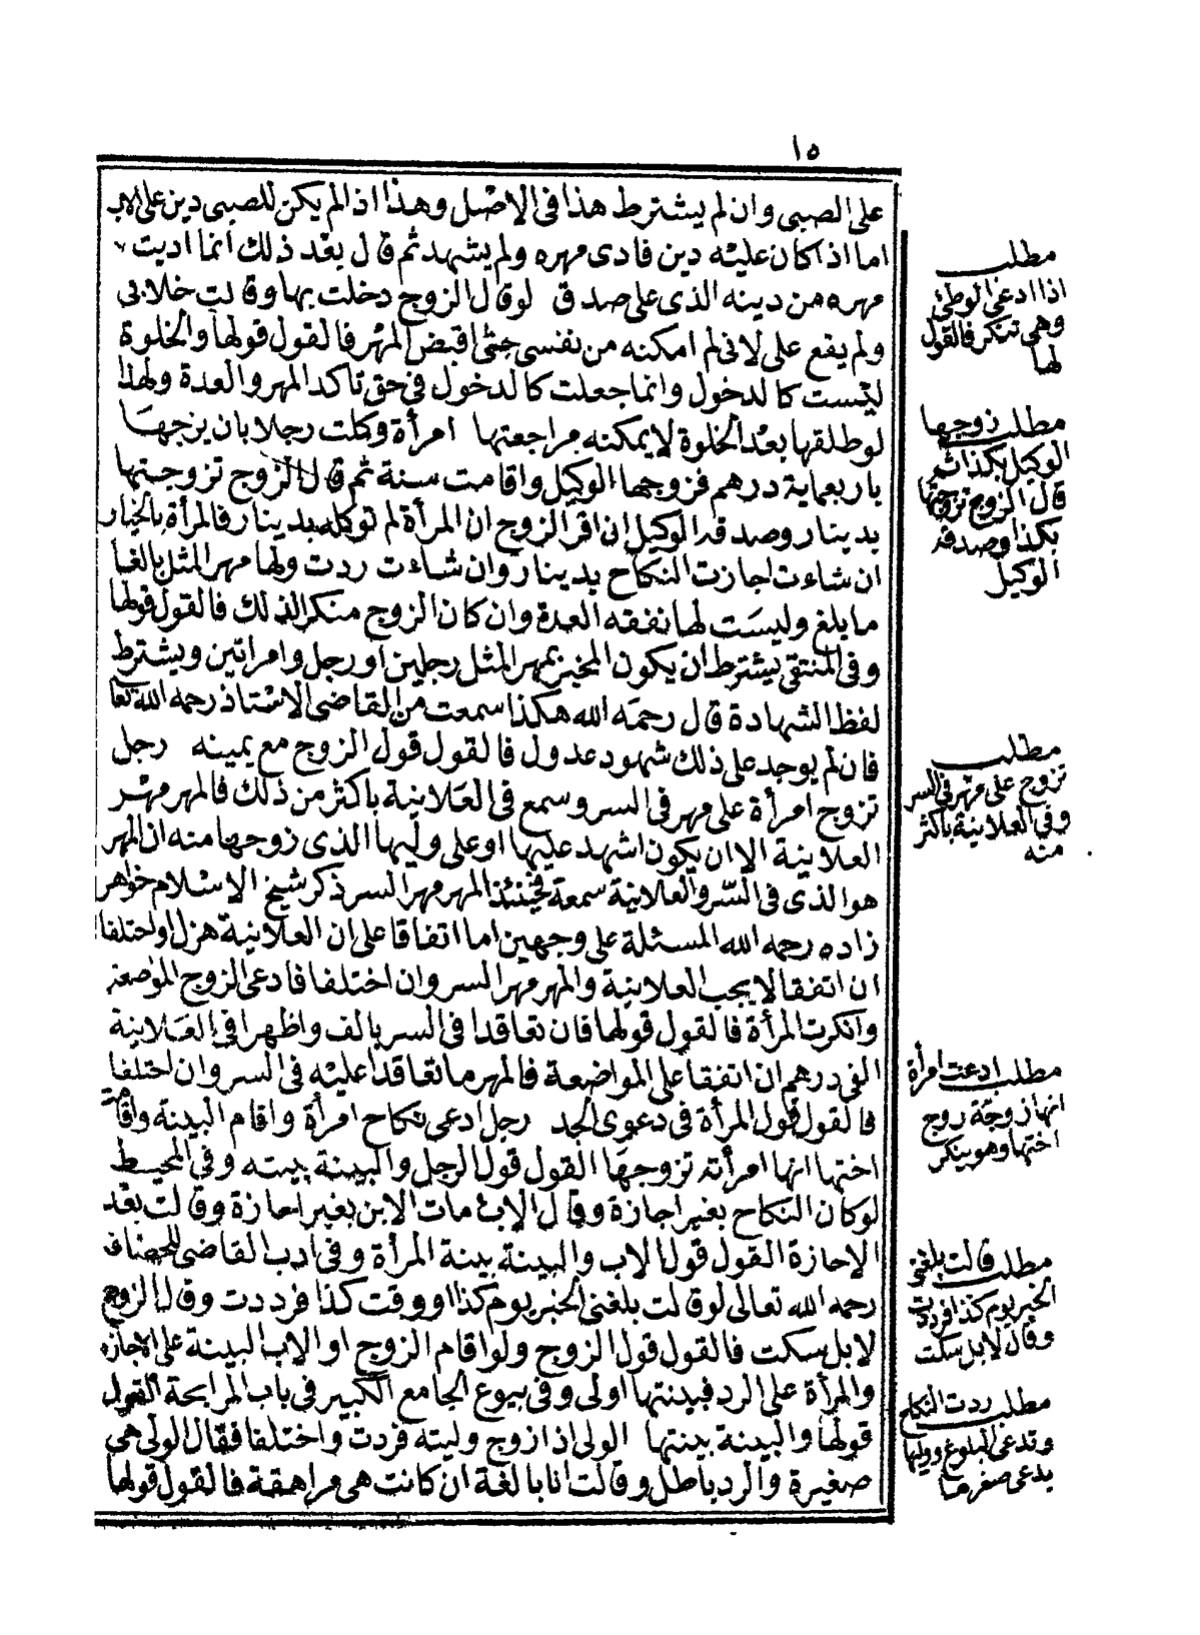 ١٥
على الصبى وان لم يشترط هذا فى الاصل وهذا اذا لم يكن للصبى دين على الاب
اما اذا كان عليه دين فادى مهره ولم يشهد ثم قال بعد ذلك انما اديت
مهره من دينه الذى على صدق لو قال الزوج دخلت بها وقالت خلا بى
ولم يقع على لانى لم امكنه من نفسى حتى اقبض المهر فالقول قولها والخلوة
ليست كالدخول وانما جعلت كالدخول فى حق تاكد المهر والعدة ولهذا
لو طلقها بعد الخلوة لا يمكنه مراجعتها امرأة وكلت رجلا بان يزجها
باربعماية درهم فزوجها الوكيل واقامت سنة ثم قال الزوج تزوجتها
بدينار وصدقه الوكيل ان اقر الزوج ان المرأة لم توكله بدينار فالمرأة بالخيار
ان شاءت اجازت النكاح بدينار وان شاءت ردت ولها مهر المثل بالغا
ما بلغ وليست لها نفقه العدة وان كان الزوج منكرا لذلك فالقول قولها
وفى المنتقى يشترط ان يكون المخبر بمهر المثل رجلين او رجل وامراتين ويشترط
لفظ الشهادة قال رحمه الله هكذا سمعت من القاضى الاستاذ رحمه الله تعا
فان لم يوجد على ذلك شهود عدول فالقول قول الزوج مع يمينه رجل
تزوج امرأة على مهر فى السر وسمع فى العلانية باكثر من ذلك فالمهر مهر
العلانية الا ان يكون اشهد عليها او على وليها الذى زوجها منه ان المهر
هو الذى فى السر والعلانية سمعة فحينئذ المهر مهر السر ذكر شيخ الاسلام خواهر
زاده رحمه الله المسئلة على وجهين اما اتفاقا على ان العلانية هزل او اختلفا
ان اتفقا لا يجب العلانية والمهر مهر السر وان اختلفا فادعى الزوج المواضعة
وانكرت المرأة فالقول قولها فان تعاقدا فى السر بالف واظهرا فى العلانية
الفى درهم ان اتفقا على المواضعة فالمهر ما تعاقدا عليه فى السر وان اختلفا
فالقول قول المرأة فى دعوى الجد رجل ادعى نكاح امرأة واقام البينة واقامت
اختها انها امرأته تزوجها القول قول الرجل والبينة بينته وفى المحيط
لو كان النكاح بغير اجازة وقال الاب مات الابن بغير اجازة وقالت بعد
الاجازة القول قول الاب والبينة بينة المرأة وفى ادب القاضى للخصاف
رحمه الله تعالى لو قالت بلغنى الخبر يوم كذا او وقت كذا فرددت وقال الزوج
لا بل سكت فالقول قول الزوج ولو اقام الزوج او الاب البينة على الاجازة
والمرأة على الرد فبينتها اولى وفى بيوع الجامع الكبير فى باب المرابحة القول
قولها والبينة بينتها الولى اذا زوج وليته فردت واختلفا فقال الولى هى
صغيرة والرد باطل وقالت انا بالغة ان كانت هى مراهقة فالقول قولها
مطلب
اذا ادعى الوطئ
وهى تنكر فالقول
لها
مطلب زوجها
الوكيل بكذا ثم
قال الزوج تزوجتها
بكذا وصدقه
الوكيل
مطلب
تزوج على مهر فى السر
وفى العلانية باكثر
منه
مطلب ادعت امرأة
انها زوجة زوج
اختها وهو ينكر
مطلب قالت بلغنى
الخبر يوم كذا فرددت
وقال لا بل سكت
مطلب ردت النكاح
وتدعى البلوغ ووليها
يدعى صغرها